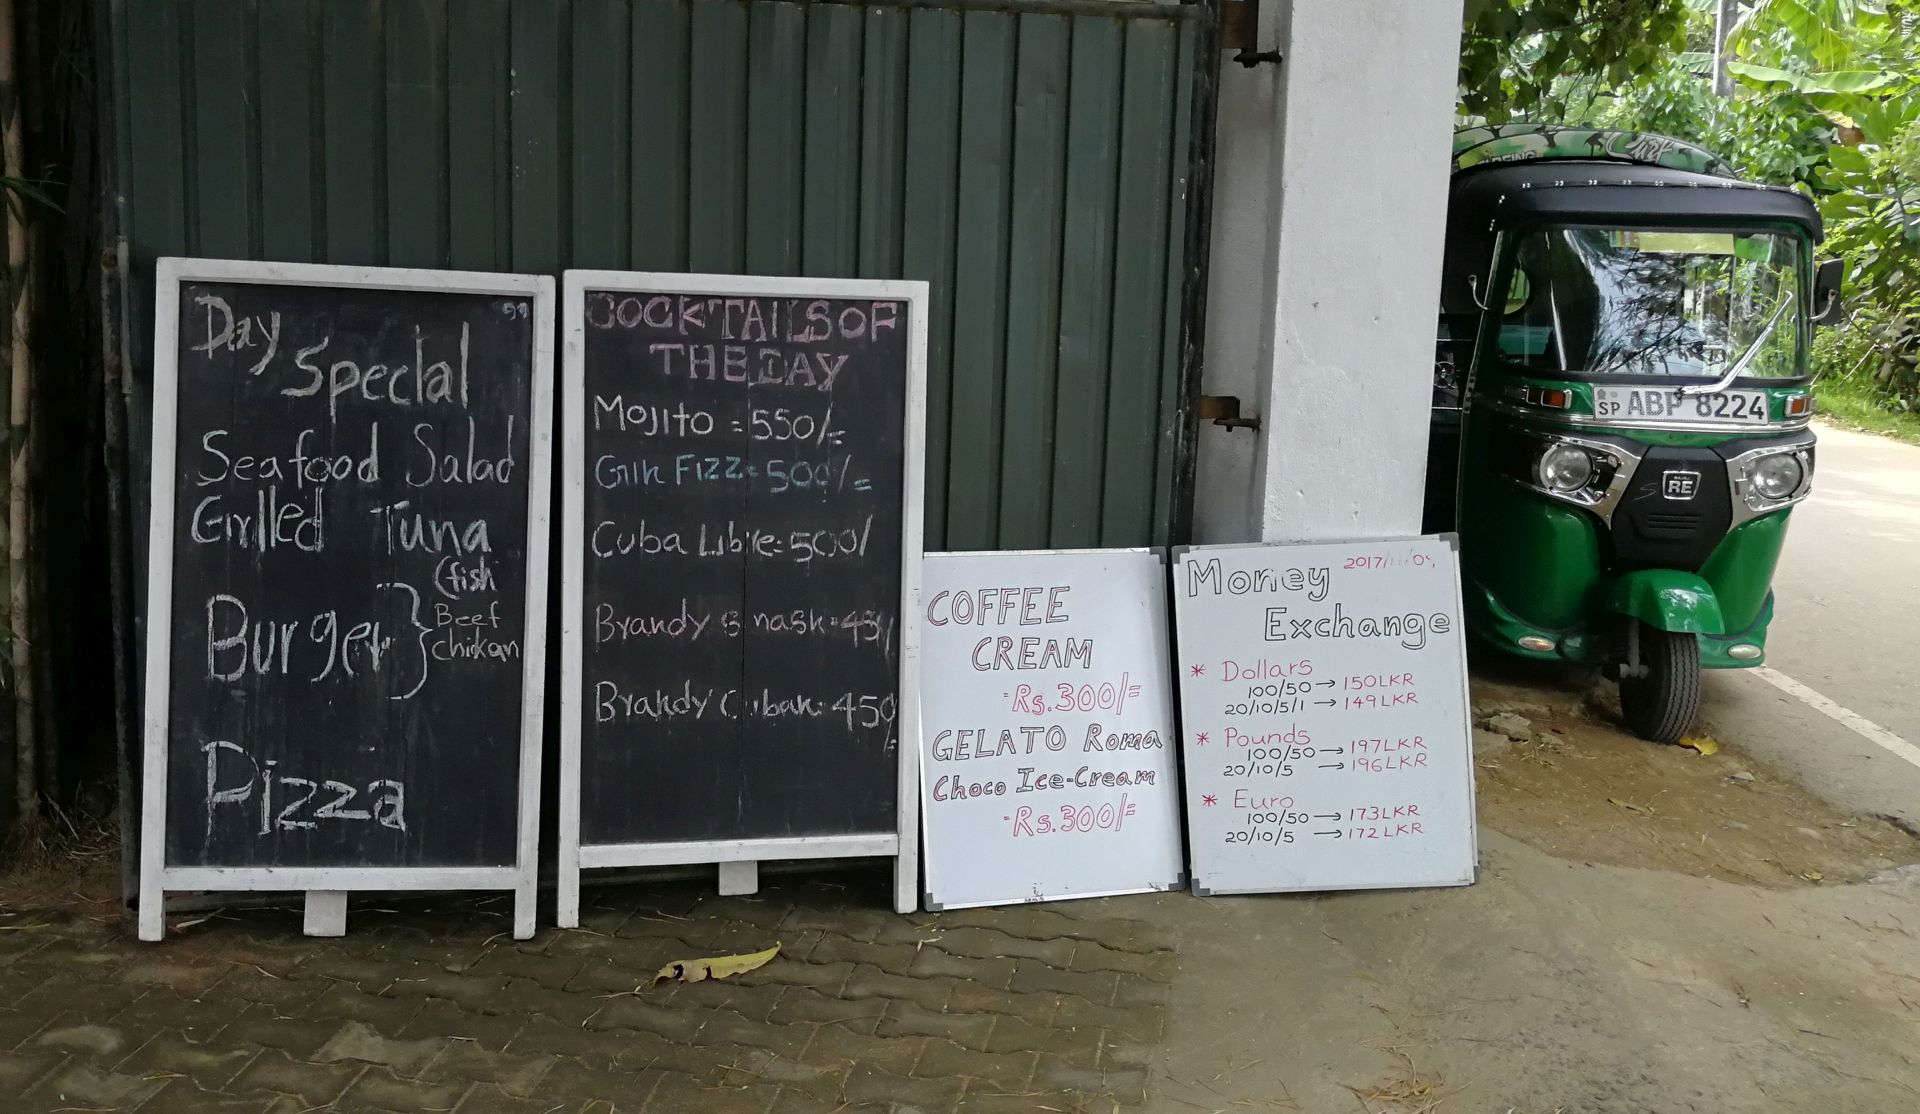 Day
Special
Seafood Salad
Grilled Tuna
Burger
(fish
Beef
Chikan
Pizza
COCKTAILS OF
THE DAY
MOJITO = 550/=
Gin FIZZ = 500/=
Cuba Libre = 500/
Brandy
Brandy Cuban
COFFEE
CREAM
=Rs.300/=
GELATO Roma
Choco Ice-Cream
=Rs.300/=
Money 2017/
Exchange
* Dollars
100/50 → 150LKR
20/10/5/1 → 149LKR
* Pounds
100/50 → 197LKR
20/10/5 → 196LKR
* Euro
100/50 → 173LKR
20/10/5 → 172LKR
SP ABP 8224
RE